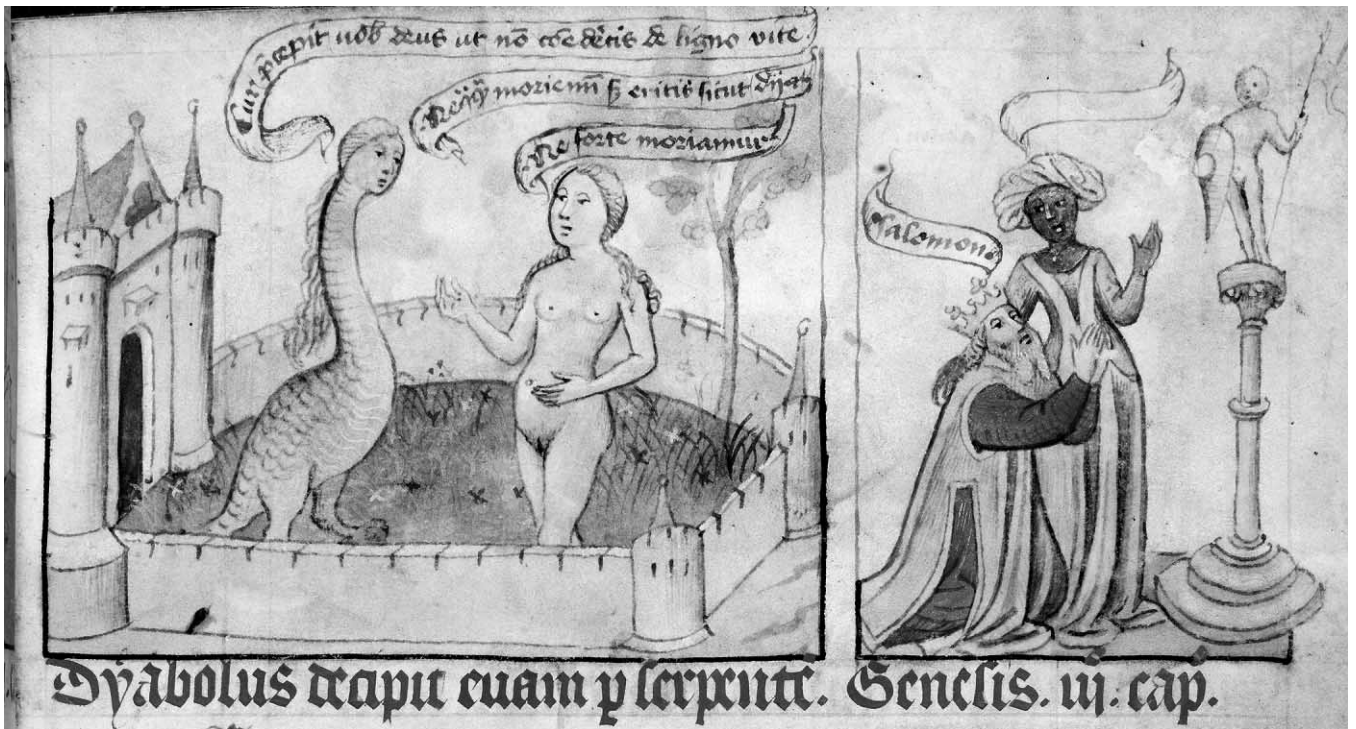 Cur p̄cepit uob̄ deus ut nō cōedetis de ligno vite
moriemī sȝ eritis sicut dij
Ne forte moriamur
Salomon
Dyabolus decipit euam ꝑ serpentē. Genesis. iij. cap̄.